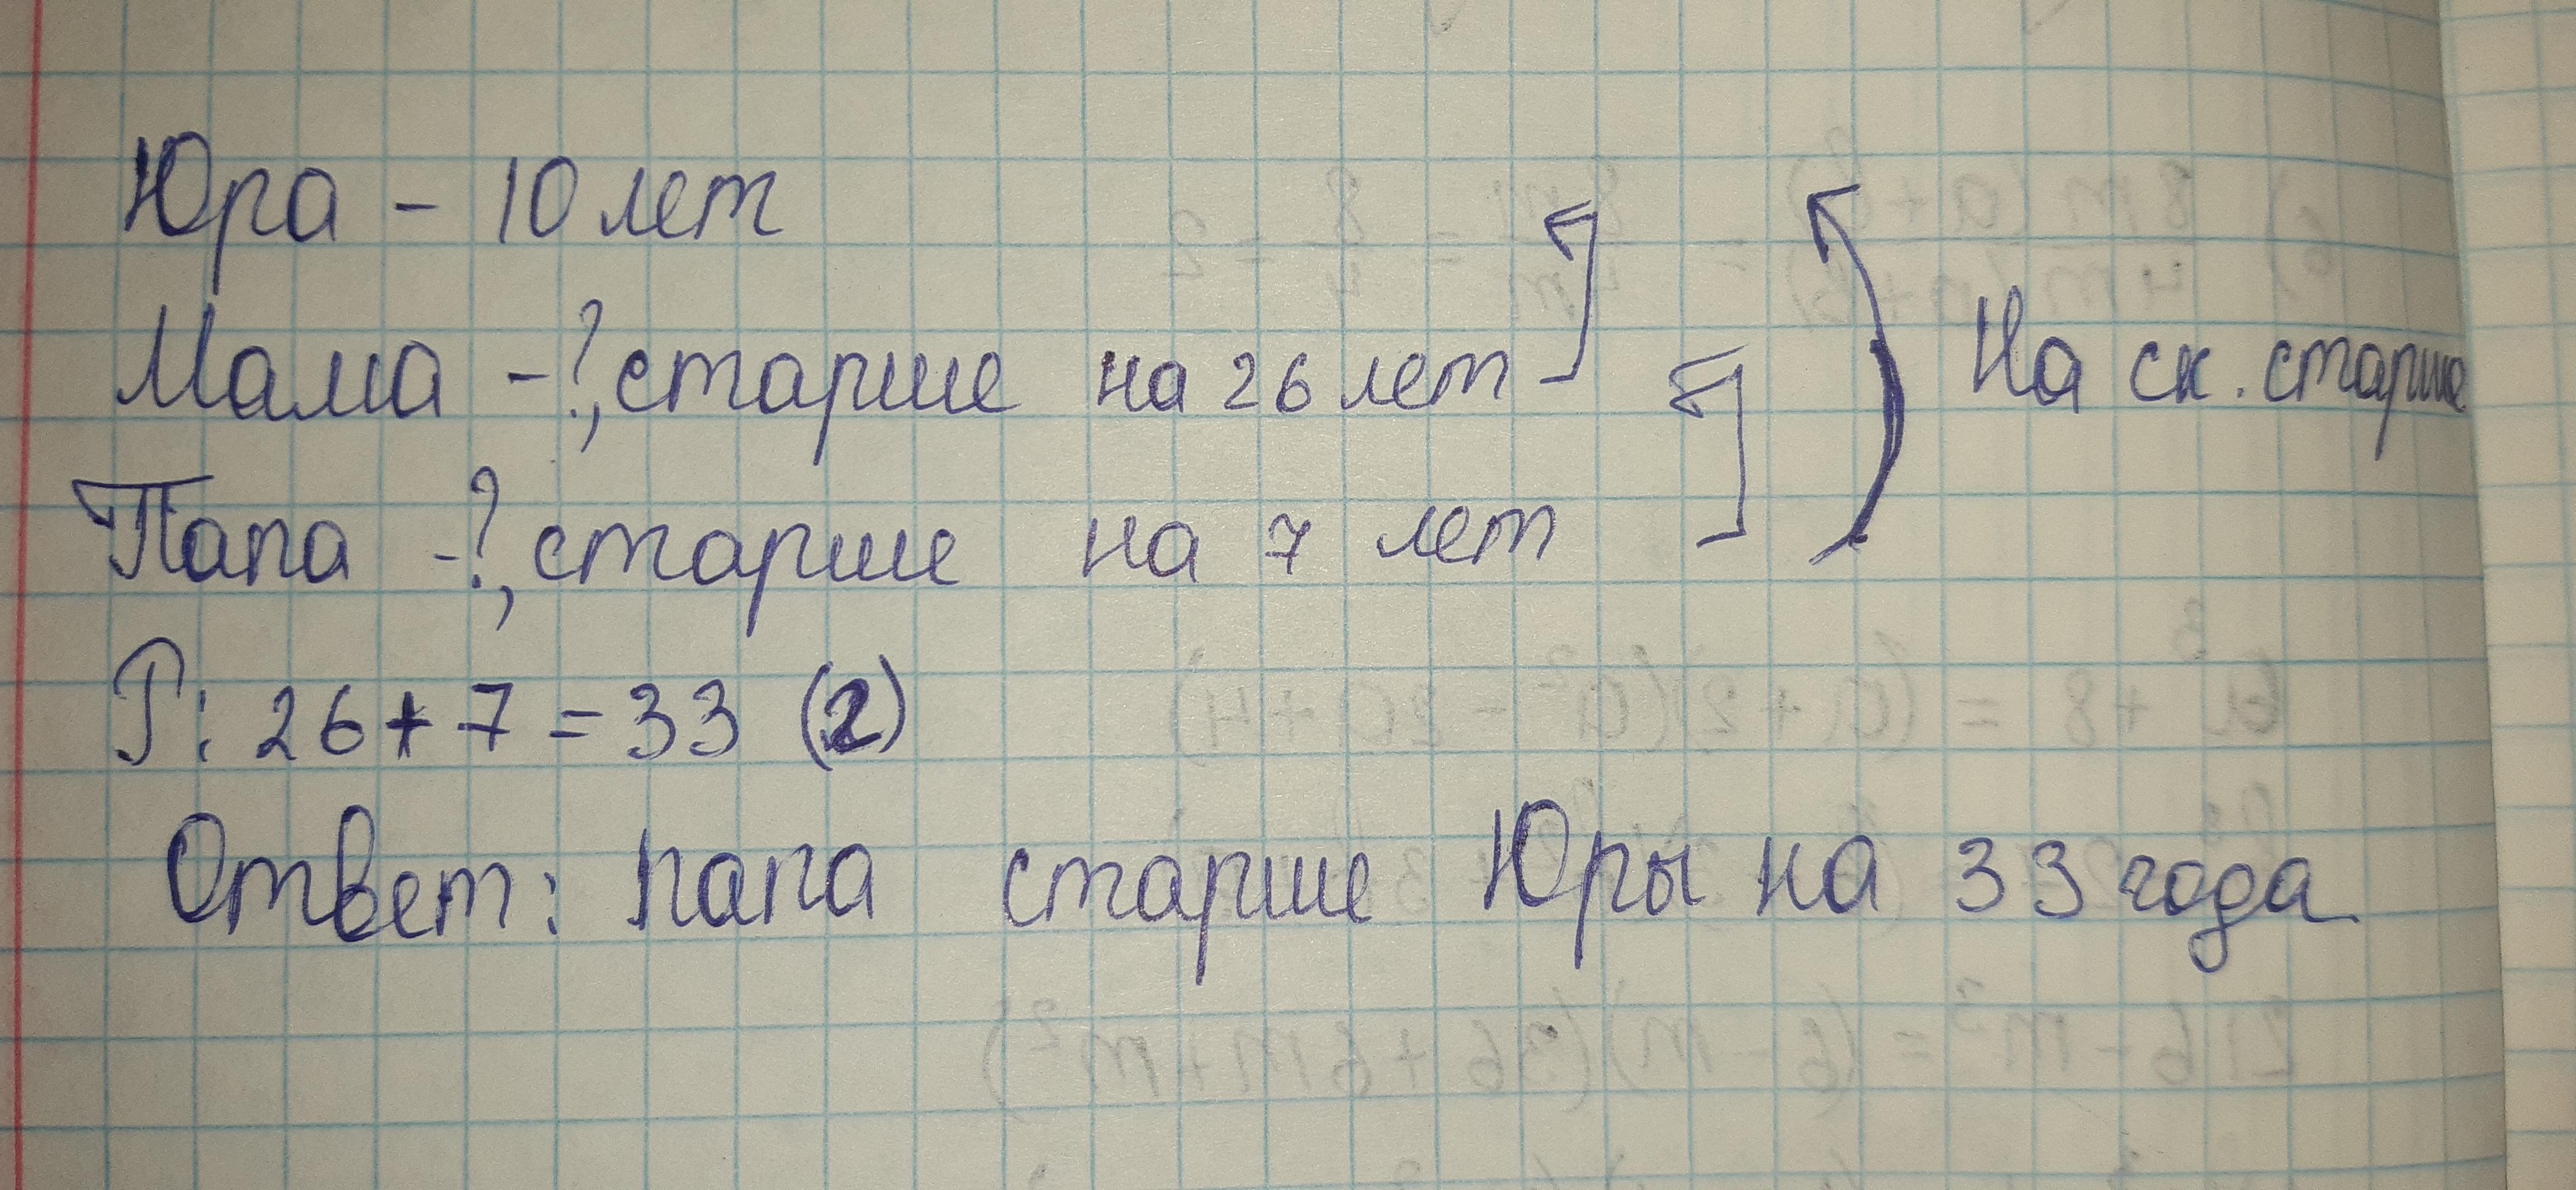 Юра - 10 лет
Мама - ?, старше на 26 лет
На ск. старше
Папа - ?, старше на 7 лет
Р: 26 + 7 = 33 (г)
Ответ: папа старше Юры на 33 года